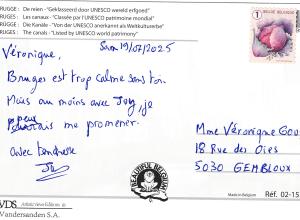 BRUGGE: De reien - "Geklasseerd door UNESCO wereld erfgoed"
BRUGES : Les canaux - "Classée par UNESCO patrimoine mondial"
BRÜGGE : Die Kanäle - "Von der UNESCO anerkannt als Weltkulturerbe"
BRUGES : The canals - "Listed by UNESCO world patrimony"
BELGIE BELGIQUE
1
19/07/2025
Véronique,
Bruges est trop calme sans toi.
Mais au moins avec Joy, je
peux
me promener.
avec tendresse
Mme Véronique
18 Rue des Oies
5030 GEMBLOUX
BEAUTIFUL BELGIUM
VDS
Vandersanden S.A.
Réf. 02-15